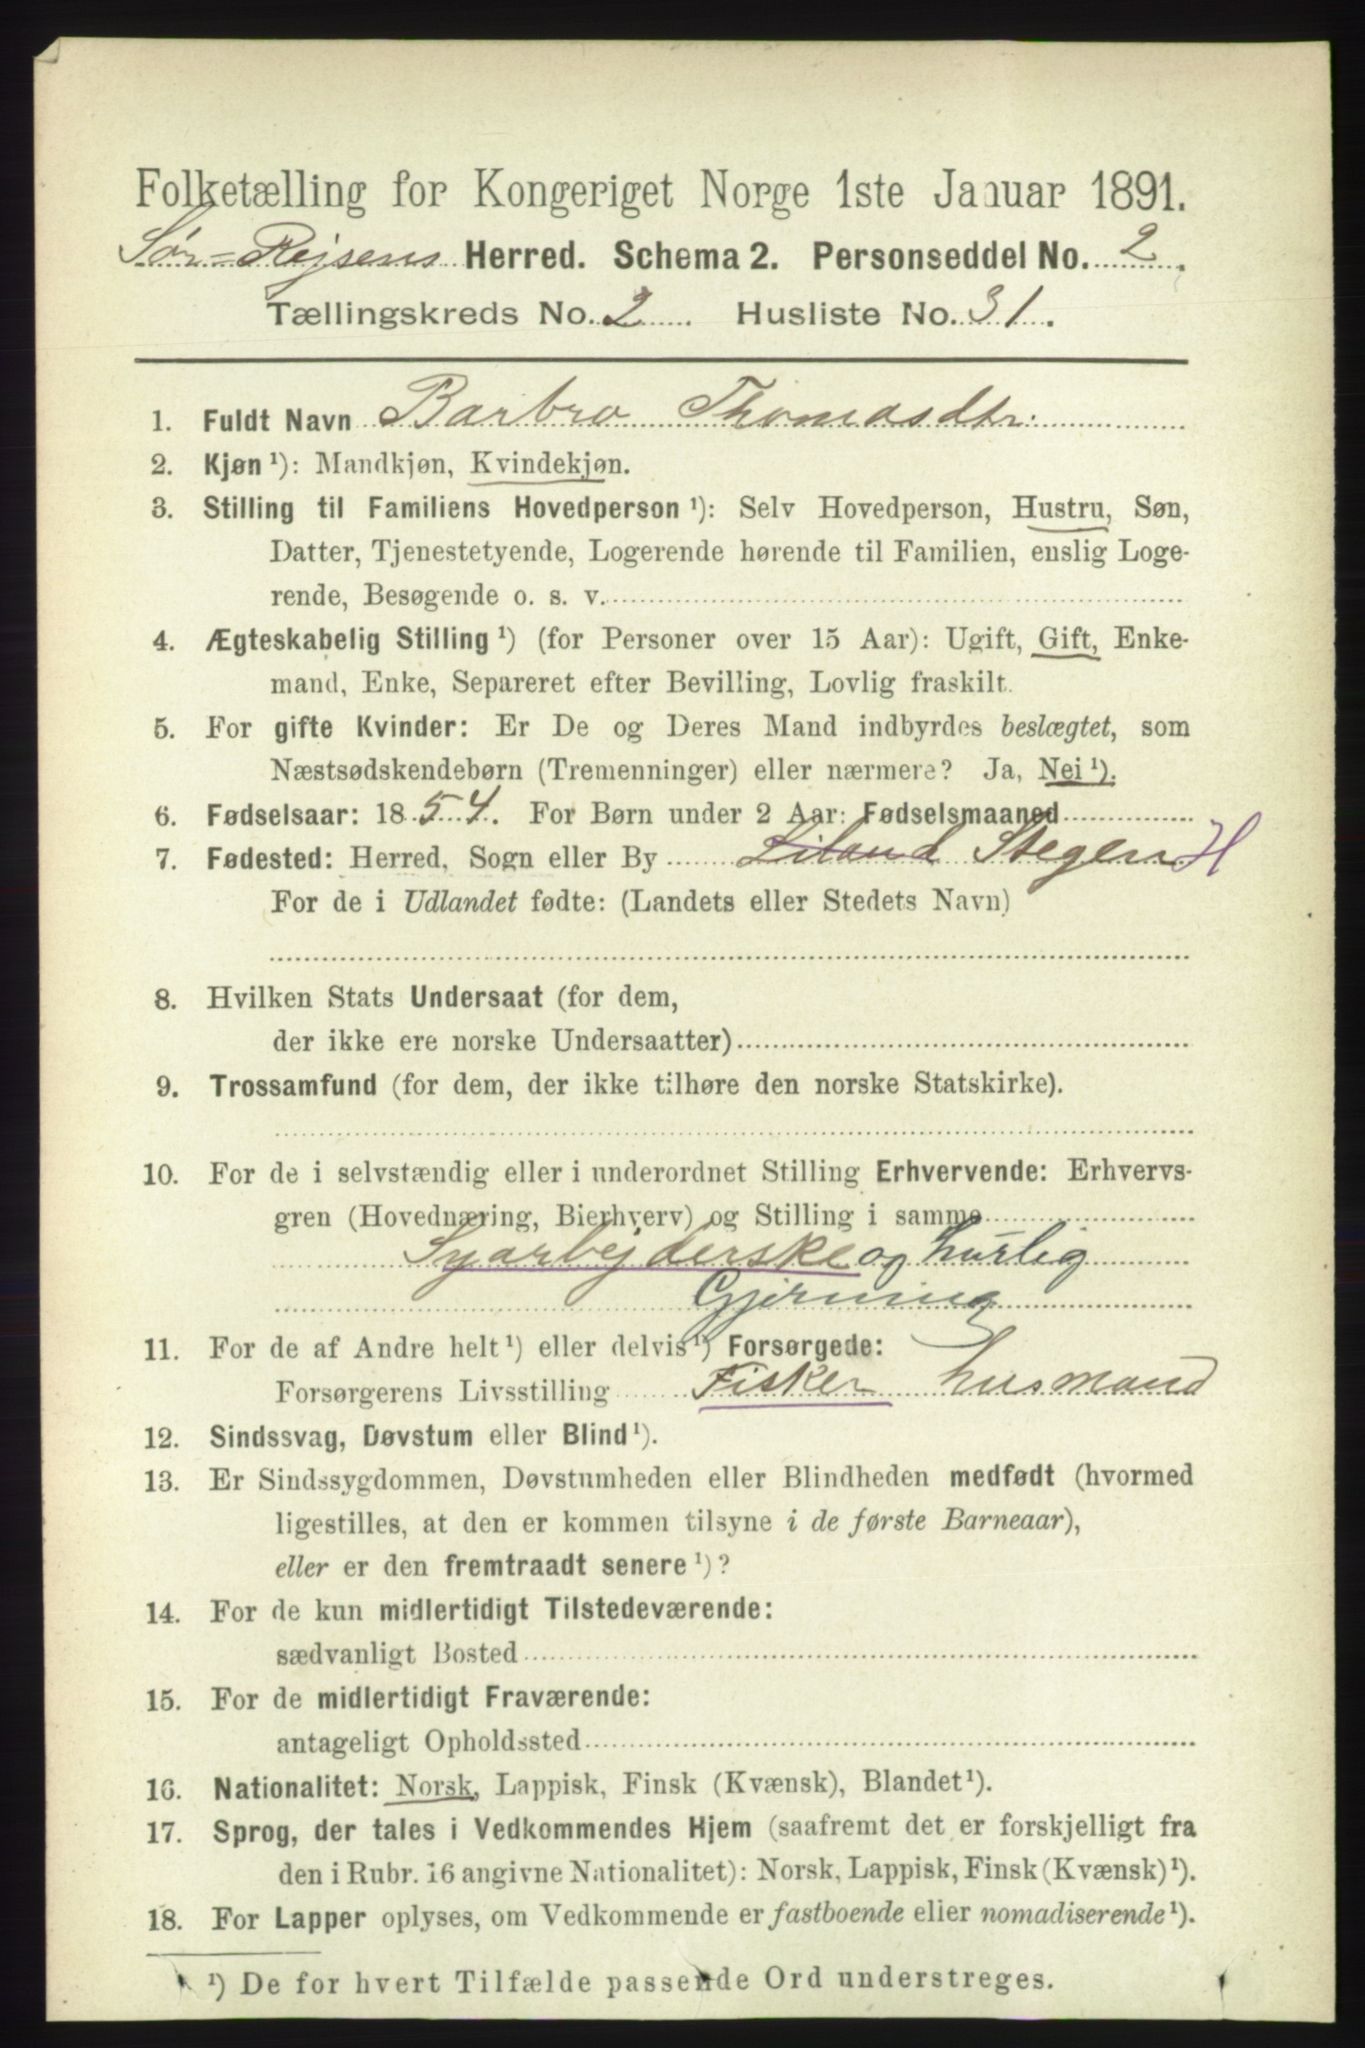 Folketælling for Kongeriget Norge 1ste Januar 1891.
Sør-Rejsens Herred. Schema 2. Personseddel No. 2.
Tællingskreds No. 2 Husliste No. 31.
1. Fuldt Navn Barbro Thomasdtr.
2. Kjøn ¹): Mandkjøn, Kvindekjøn.
3. Stilling til Familiens Hovedperson ¹): Selv Hovedperson, Hustru, Søn,
Datter, Tjenestetyende, Logerende hørende til Familien, enslig Loge-
rende, Besøgende o. s. v.
4. Ægteskabelig Stilling ¹) (for Personer over 15 Aar): Ugift, Gift, Enke-
mand, Enke, Separeret efter Bevilling, Lovlig fraskilt.
5. For gifte Kvinder: Er De og Deres Mand indbyrdes beslægtet, som
Næstsødskendebørn (Tremenninger) eller nærmere? Ja, Nei ¹).
6. Fødselsaar: 1854. For Børn under 2 Aar: Fødselsmaaned
7. Fødested: Herred, Sogn eller By Stegen H
For de i Udlandet fødte: (Landets eller Stedets Navn)
8. Hvilken Stats Undersaat (for dem,
der ikke ere norske Undersaatter)
9. Trossamfund (for dem, der ikke tilhøre den norske Statskirke).
10. For de i selvstændig eller i underordnet Stilling Erhvervende: Erhvervs-
gren (Hovednæring, Bierhverv) og Stilling i samme
Syarbejderske og huslig
Gjerning
11. For de af Andre helt ¹) eller delvis ¹) Forsørgede:
Forsørgerens Livsstilling Fisker husmand
12. Sindssvag, Døvstum eller Blind ¹).
13. Er Sindssygdommen, Døvstumheden eller Blindheden medfødt (hvormed
ligestilles, at den er kommen tilsyne i de første Barneaar),
eller er den fremtraadt senere ¹)?
14. For de kun midlertidigt Tilstedeværende:
sædvanligt Bosted
15. For de midlertidigt Fraværende:
antageligt Opholdssted
16. Nationalitet: Norsk, Lappisk, Finsk (Kvænsk), Blandet ¹).
17. Sprog, der tales i Vedkommendes Hjem (saafremt det er forskjelligt fra
den i Rubr. 16 angivne Nationalitet): Norsk, Lappisk, Finsk (Kvænsk) ¹).
18. For Lapper oplyses, om Vedkommende er fastboende eller nomadiserende ¹).
¹) De for hvert Tilfælde passende Ord understreges.